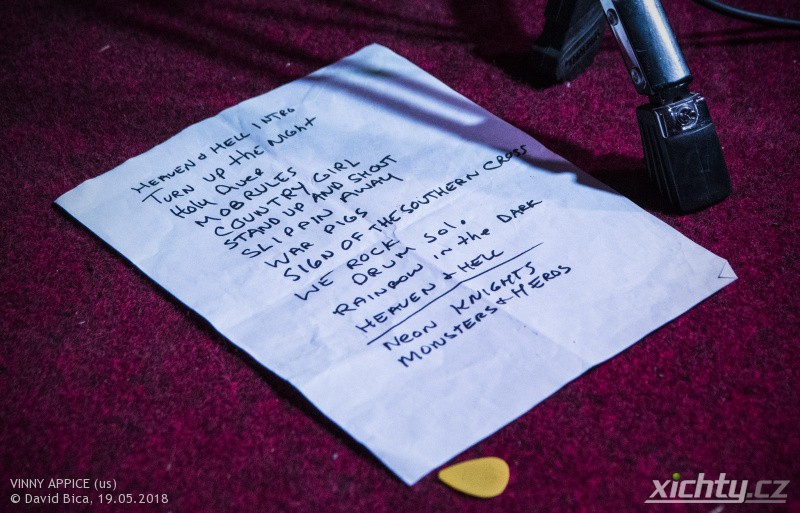 HEAVEN & HELL INTRO
TURN UP the Night
Holy Diver
MOBRULES
COUNTRY GIRL
STAND UP AND SHOUT
SLIPPIN AWAY
WAR PIGS
SIGN OF THE SOUTHERN CROSS
WE ROCK
DRUM SOLO
RAINBOW in the DARK
HEAVEN & HELL
NEON KNIGHTS
MONSTERS & HEROS
VINNY APPICE (us)
© David Bica, 19.05.2018
xichty.cz